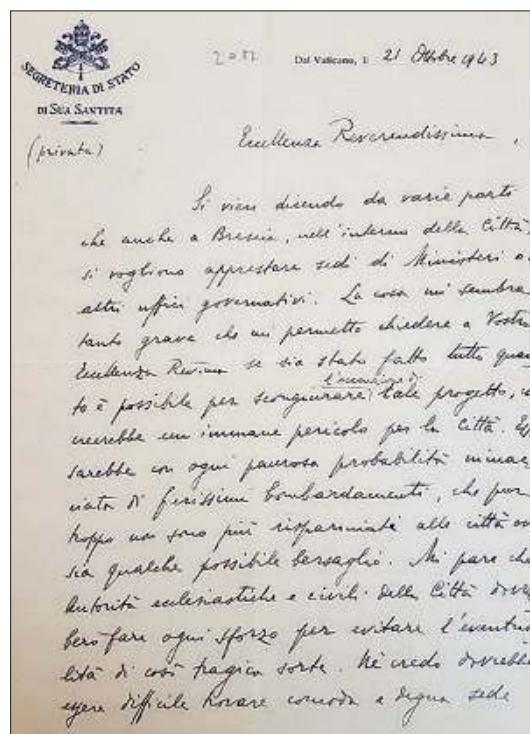 SEGRETERIA DI STATO
DI SUA SANTITÀ
(privata)
Dal Vaticano, li 21 Ottobre 1943
Eccellenza Reverendissima,
Si viene dicendo da varie parti
che anche a Brescia, nell'interno della Città,
si vogliono apprestare sedi di Ministeri o
altri uffici governativi. La cosa mi sembra
tanto grave che mi permetto chiedere a Vostra
Eccellenza Rev.ma se sia stato fatto tutto quan
to è possibile per scongiurare l'esecuzione di tale progetto,
creerebbe un immane pericolo per la Città.
sarebbe con ogni paurosa probabilità minac
ciata di fierissimi bombardamenti, che pur
troppo non sono più risparmiati alle città
sia qualche possibile bersaglio. Mi pare che
Autorità ecclesiastiche e civili della Città dovreb
bero fare ogni sforzo per evitare l'eventua
lità di così tragica sorte. Né credo dovrebbe
essere difficile trovare comoda e degna sede